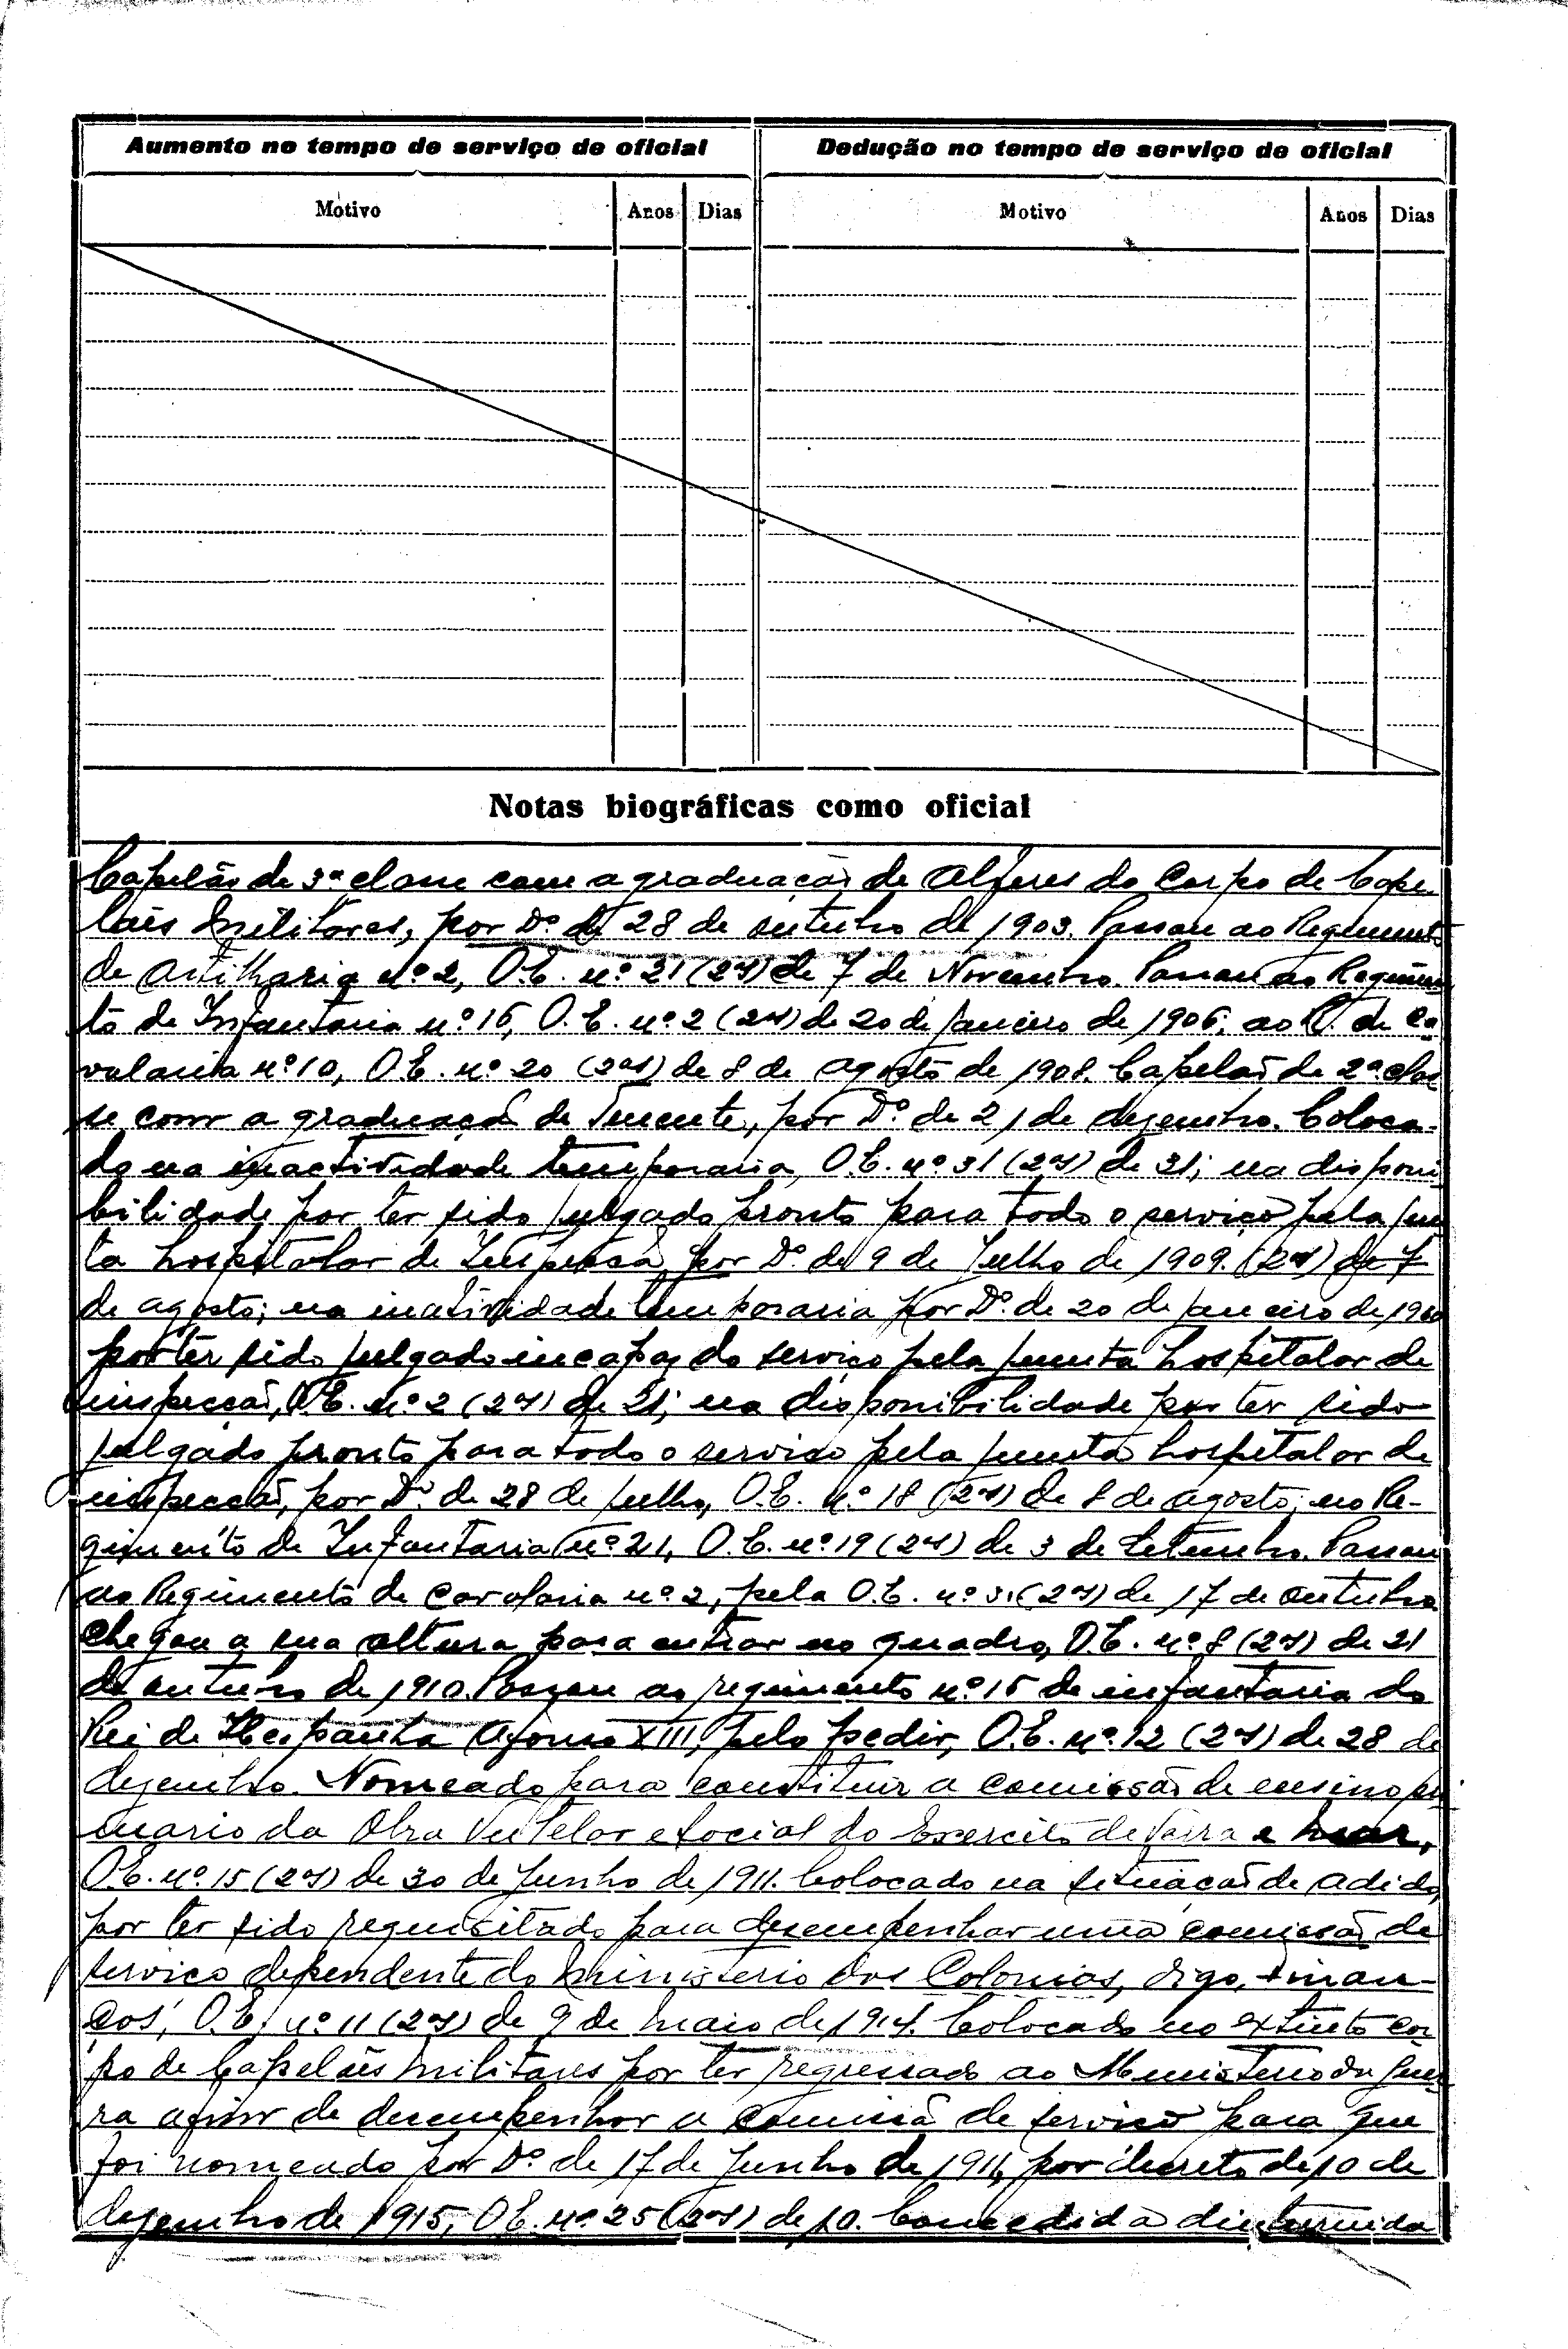 Aumento no tempo de serviço de oficial
Dedução no tempo de serviço de oficial
Motivo Anos Dias
Motivo Anos Dias
Notas biográficas como oficial
Capelão de 3ª classe com a graduação de Alferes do Corpo de Cape
lães militares, por Dº de 28 de outubro de 1903. Passou ao Regimento
de Artilharia nº 2, O.E. nº 21 (2ªS) de 7 de Novembro. Passou ao Regimen
to de Infantaria nº 16, O.E. nº 2 (2ªS) de 20 de janeiro de 1906; ao R. de Ca
valaria nº 10, O.E. nº 20 (2ªS) de 8 de agosto de 1908. Capelão de 2ª clas
se com a graduação de Tenente, por Dº de 21 de dezembro. Coloca-
do na inactividade temporaria, O.E. nº 31 (2ªS) de 31; na disponi
bilidade por ter sido julgado pronto para todo o serviço pela jun
ta hospitalar de por Dº de 9 de Julho de 1909. (2ªS) de 7
de agosto; na inatividade temporaria por Dº de 20 de janeiro de 1910
por ter sido julgado incapaz do serviço pela junta hospitalar de
inspecção, O.E. nº 2 (2ªS) de 21; na disponibilidade por ter sido
julgado pronto para todo o serviço pela junta hospitalar de
inspecção, por Dº de 28 de julho, O.E. nº 18 (2ªS) de 8 de agosto; no Re-
gimento de Infantaria nº 21, O.E. nº 19 (2ªS) de 3 de Setembro. Passou
ao Regimento de Cavalaria nº 2, pela O.E. nº 3 (2ªS) de 17 de outubro
Chegou a sua altura para entrar no quadro, O.E. nº 8 (2ªS) de 21
de outubro de 1910. Passou ao regimento nº 16 de infantaria do
Rei de Hespanha Afonso XIII, pelo pedir, O.E. nº 12 (2ªS) de 28 de
dezembro. Nomeado para constituir a comissão de ensino pri
mario da Obra Tutelar e Social do Exercito de Terra e Mar,
O.E. nº 15 (2ªS) de 30 de Junho de 1911. Colocado na situação de adido,
por ter sido requisitado para desempenhar uma comissão de
serviço dependente do Ministerio das Colonias, digo, Finan-
ças, O.E. nº 11 (2ªS) de 9 de Maio de 1914. Colocado no extinto cor
po de Capelães Militares por ter regressado ao Ministerio da Guer
ra afim de desempenhar a comissão de serviço para que
foi nomeado por Dº de 17 de Junho de 1911, por decreto de 10 de
dezembro de 1915, O.E. nº 25 (2ªS) de 10. Concedida